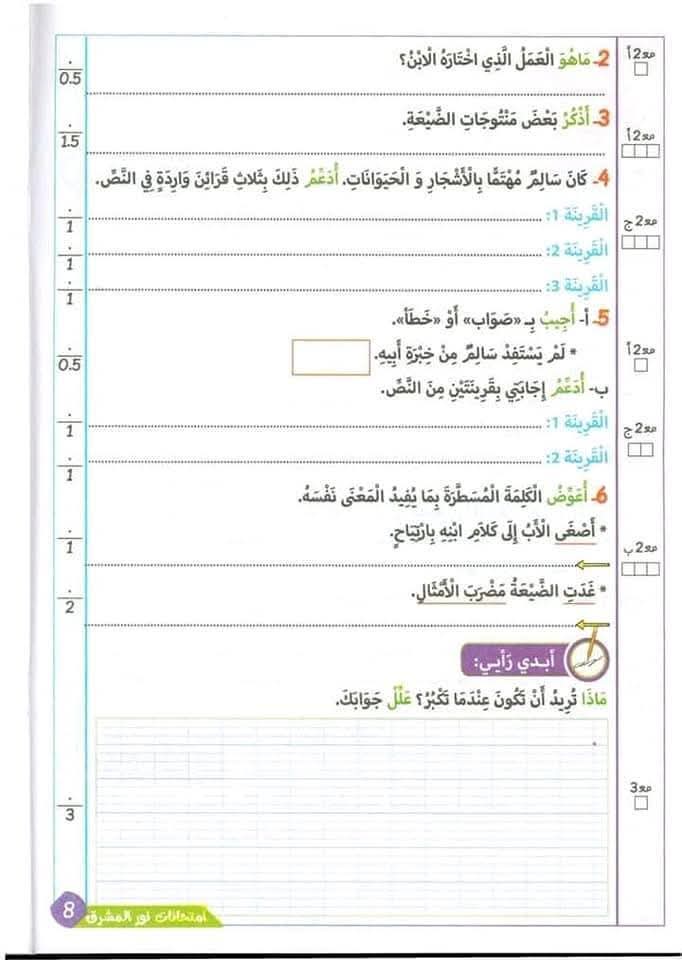 مع2 أ
2- مَاهُوَ الْعَمَلُ الَّذِي اخْتَارَهُ الْابْنُ؟
0.5
مع2 أ
3- أَذْكُرُ بَعْضَ مَنْتُوجَاتِ الضَّيْعَةِ.
1.5
4- كَانَ سَالِمٌ مُهْتَمًّا بِالْأَشْجَارِ وَ الْحَيَوَانَاتِ. أُدَعِّمُ ذَلِكَ بِثَلَاثِ قَرَائِنَ وَارِدَةٍ فِي النَّصِّ.
مع2 ج
الْقَرِينَة 1:
1
الْقَرِينَة 2:
1
الْقَرِينَة 3:
1
5- أ- أُجِيبُ بِـ «صَوَاب» أَوْ «خَطَأ».
مع2 أ
* لَمْ يَسْتَفِدْ سَالِمٌ مِنْ خِبْرَةِ أَبِيهِ.
0.5
ب- أُدَعِّمُ إِجَابَتِي بِقَرِينَتَيْنِ مِنَ النَّصِّ.
مع2 ج
الْقَرِينَة 1:
1
الْقَرِينَة 2:
1
6- أُعَوِّضُ الْكَلِمَةَ الْمُسَطَّرَةَ بِمَا يُفِيدُ الْمَعْنَى نَفْسَهُ.
* أَصْغَى الْأَبُ إِلَى كَلَامِ ابْنِهِ بِارْتِيَاحٍ.
1
مع2 ب
* غَدَتِ الضَّيْعَةُ مَضْرَبَ الْأَمْثَالِ.
2
أبدي رَأيي:
مَاذَا تُرِيدُ أَنْ تَكُونَ عِنْدَمَا تَكْبُرُ؟ عَلِّلْ جَوَابَكَ.
مع3
3
امتحانات نور المشرق
8